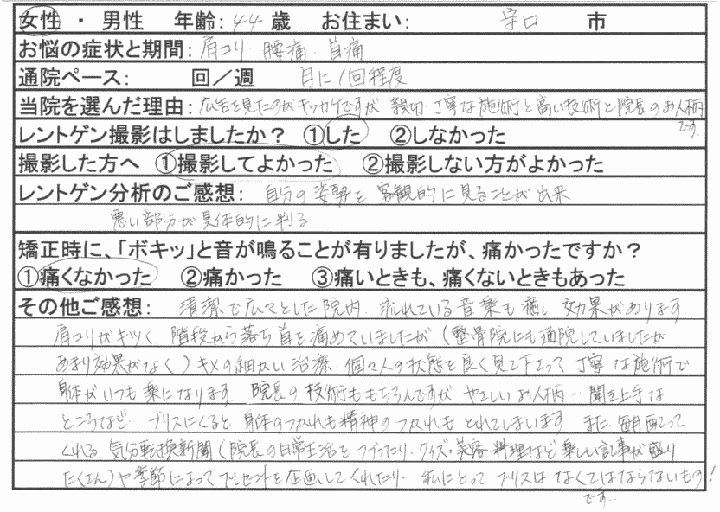 女性 ・ 男性 年齢: 44 歳 お住まい: 守口 市
お悩の症状と期間: 肩コリ 腰痛 首痛
通院ペース: 回/週 月に1回程度
当院を選んだ理由: 広告を見たのがキッカケですが 親切 丁寧な施術と高い技術と院長のお人柄
です
レントゲン撮影はしましたか? ①した ②しなかった
撮影した方へ ①撮影してよかった ②撮影しない方がよかった
レントゲン分析のご感想: 自分の姿勢を 客観的に見ることが出来
悪い部分が具体的に判る
矯正時に、「ボキッ」と音が鳴ることが有りましたが、痛かったですか?
①痛くなかった ②痛かった ③痛いときも、痛くないときもあった
その他ご感想: 清潔で広々とした院内 流れている音楽も癒し効果があります
肩コリがキツく 階段から落ち首を痛めていましたが (整骨院にも通院していましたが
あまり効果がなく) キメの細かい治療 個々人の状態を良く見て下さって 丁寧な施術で
身体がいつも楽になります 院長の技術ももちろんですが やさしいお人柄… 聞き上手な
ところなど… ブリスにくると 身体のつかれも精神のつかれも とれてしまいます また 毎月配って
くれる 気分転換新聞 (院長の日常生活をつづったり クイズ・美容 料理など楽しい記事が盛り
たくさん) や季節によってプレゼントを企画してくれたり… 私にとって ブリスは なくてはならないもの!
です…